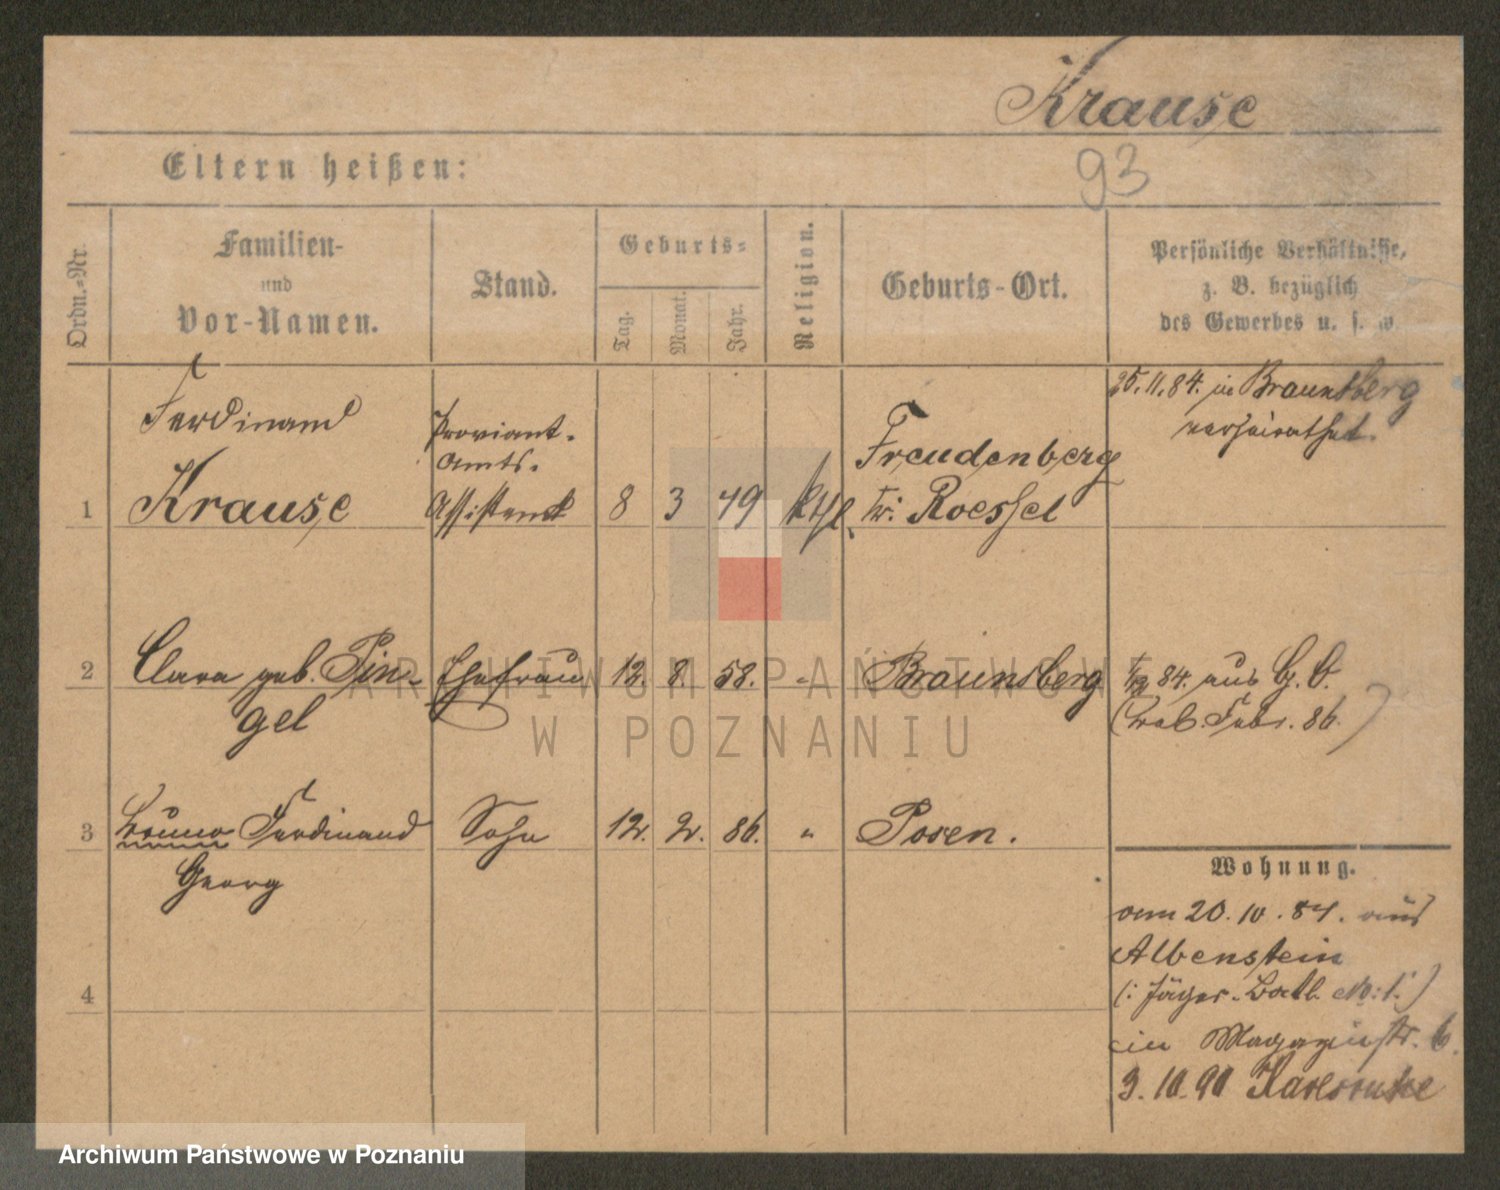 Krause
Eltern heißen:
93
Ordn.-Nr.
Familien-
und
Vor-Namen.
Stand.
Geburts-
Tag.
Monat.
Jahr.
Religion.
Geburts-Ort.
Persönliche Verhältnisse,
z. B. bezüglich
des Gewerbes u. s. w.
1
Ferdinand
Krause
Proviant-
Amts-
Assistent
8 3 49 kthl.
Freudenberg
Kr. Roessel
25.11.84. in Braunsberg
verheirathet.
2
Clara geb. Pin-
gel
Ehefrau
12. 8. 58. "
Braunsberg
84. aus G. O.
Febr. 86.)
3
Bruno Ferdinand
Georg
Sohn
12. 2. 86. "
Posen.
Wohnung.
am 20.10.84. aus
Allenstein
(: Jäger-Batl. No: 1.)
in Magazinstr. 6.
3.10.90 Karlsruhe
4
ARCHIWUM PAŃSTWOWE
W POZNANIU
Archiwum Państwowe w Poznaniu